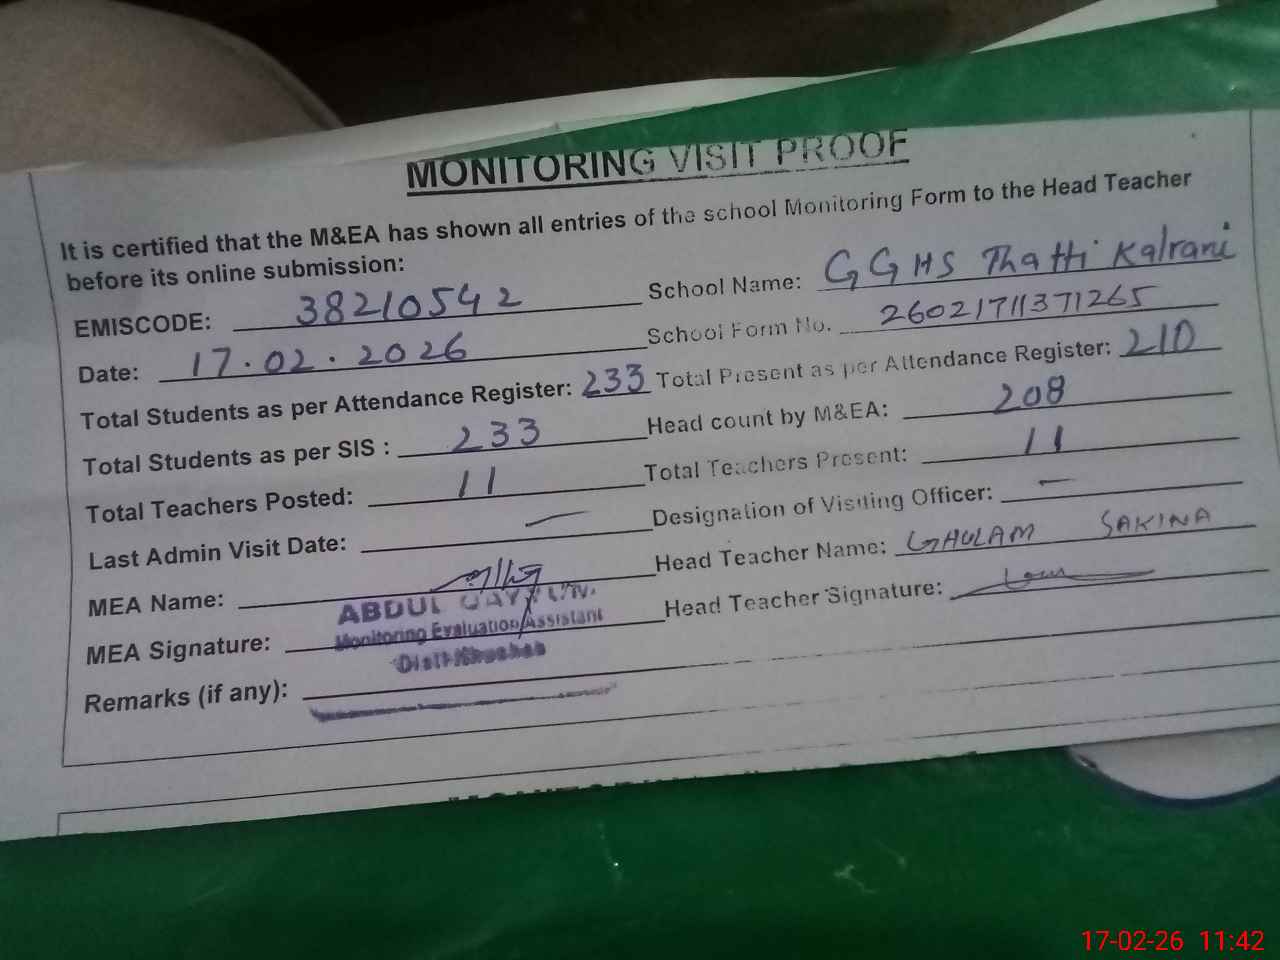 MONITORING VISIT PROOF
It is certified that the M&EA has shown all entries of the school Monitoring Form to the Head Teacher
before its online submission:
EMISCODE: 38210542 School Name: GGHS Thatti Kalrani
Date: 17.02.2026 School Form No. 26021711371265
Total Students as per Attendance Register: 233 Total Present as per Attendance Register: 210
Total Students as per SIS : 233 Head count by M&EA: 208
Total Teachers Posted: 11 Total Teachers Present: 11
Last Admin Visit Date: — Designation of Visiting Officer: —
MEA Name: Head Teacher Name: GHULAM SAKINA
MEA Signature: Head Teacher Signature:
ABDUL QAYYUM
Monitoring Evaluation Assistant
Remarks (if any):
17-02-26 11:42